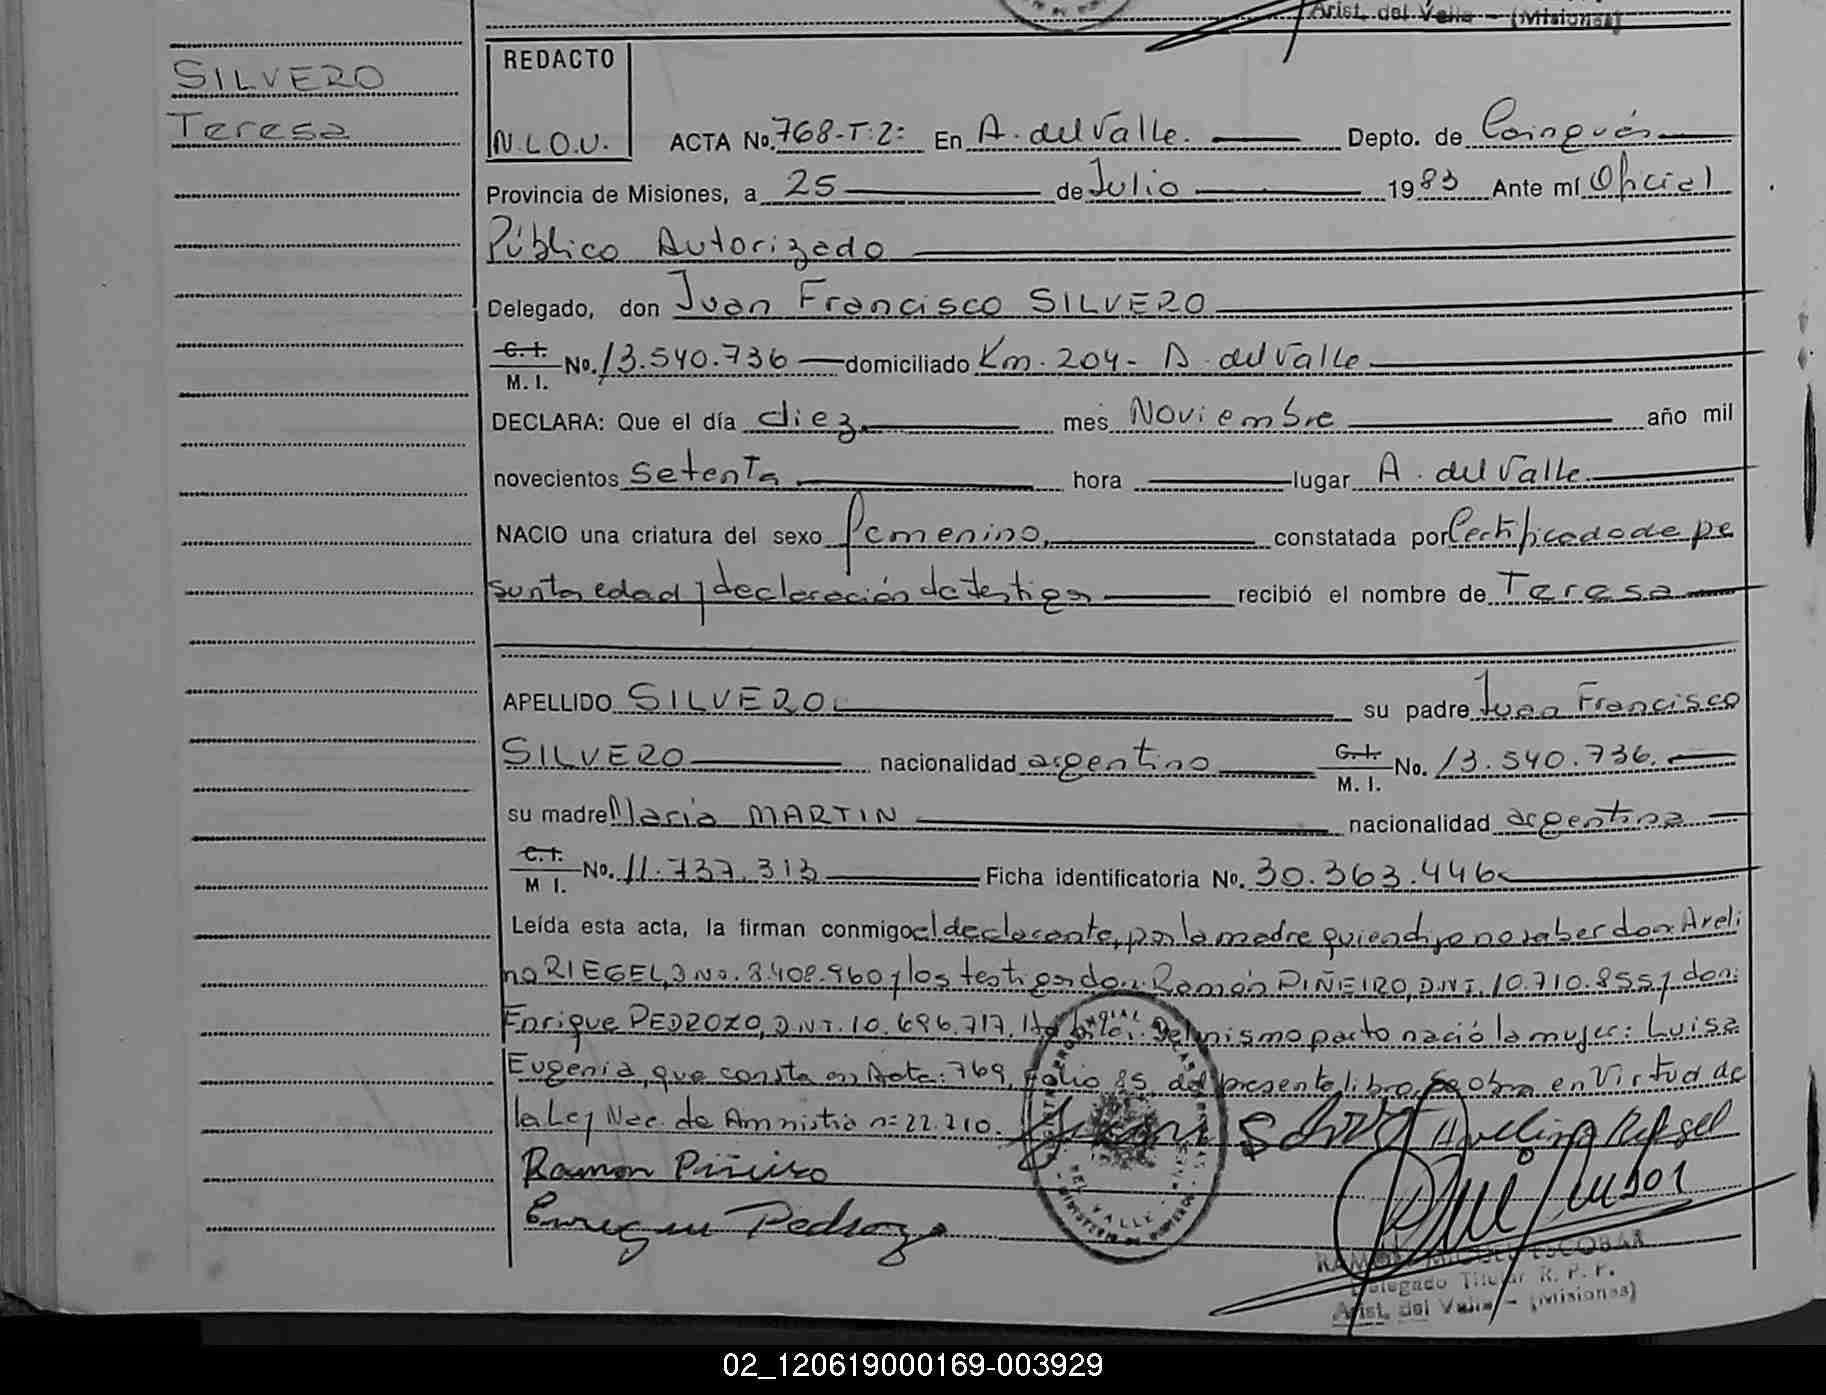 Arist. del Valle - (Misiones)
SILVERO
Teresa
REDACTO
N.L.O.U.
ACTA No. 768-T:2: En A. del Valle. Depto. de Cainguás
Provincia de Misiones, a 25 de Julio 1983 Ante mí Oficial
Público Autorizado
Delegado, don Juan Francisco SILVERO
C. I. / M. I. No. 13.540.736 domiciliado Km. 204 - A. del Valle
DECLARA: Que el día diez mes Noviembre año mil
novecientos setenta hora lugar A. del Valle
NACIO una criatura del sexo femenino, constatada por Certificado de pe
sunta edad y declaración de testigos recibió el nombre de Teresa
APELLIDO SILVERO su padre Juan Francisco
SILVERO nacionalidad argentino C. I. / M. I. No. 13.540.736.
su madre María MARTIN nacionalidad argentina
C. I. / M I. No. 11.737.313 Ficha identificatoria No. 30.363.446
Leída esta acta, la firman conmigo el declarante, por la madre quien dijo no saber don: Aveli
no RIEGEL, D.No. 8.408.960 y los testigos don: Ramón PIÑEIRO, D.N.I. 10.710.855 y don:
Enrique PEDROZO, D.N.I. 10.696.717. Del mismo parto nació la mujer: Luisa
Eugenia, que consta en Acta: 769, Folio 85 del presente libro. Se obra en Virtud de
la Ley Nac. de Amnistía nº 22.210.
Ramon Piñeiro
Enrique Pedrozo
RAMON MIGUEL ESCOBAR
Delegado Titular R. P. P.
Arist. del Valle - (Misiones)
02_120619000169-003929